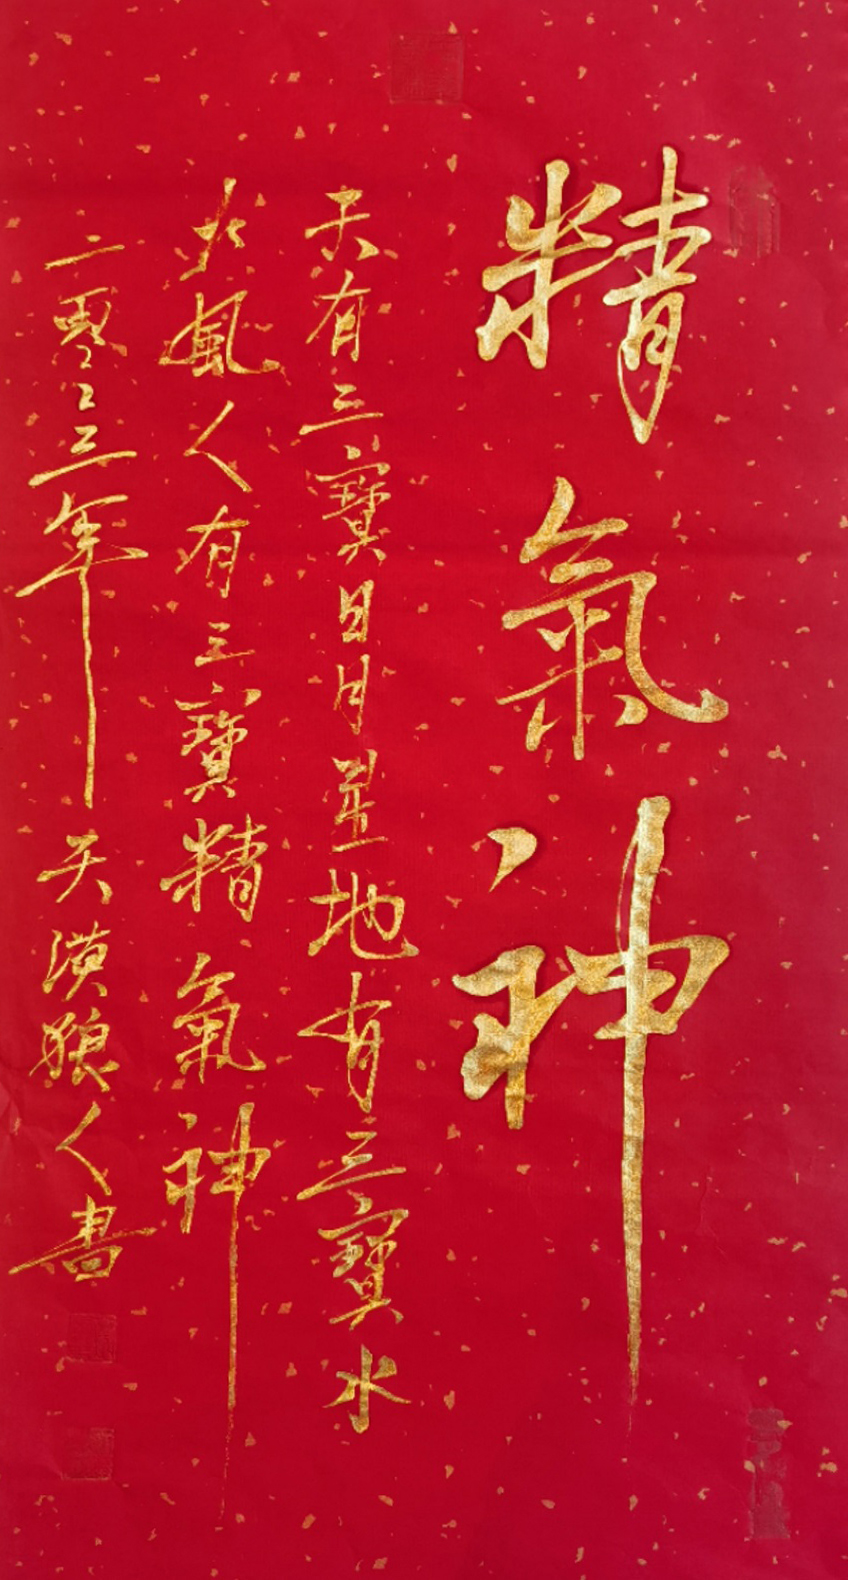 精氣神
天有三寶日月星地有三寶水
火風人有三寶精氣神
二零二三年天漠狼人書